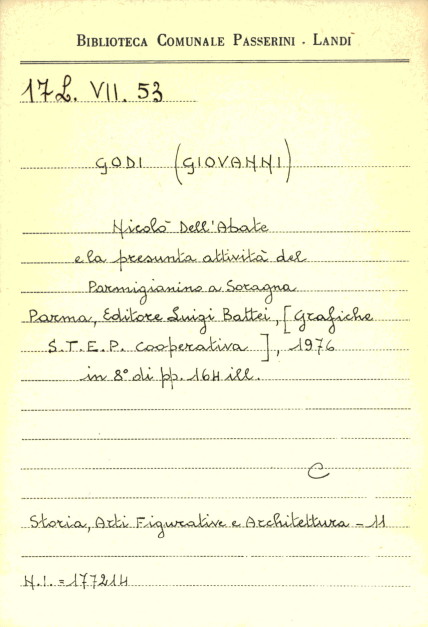 BIBLIOTECA COMUNALE PASSERINI - LANDI
17L. VII. 53
GODI (GIOVANNI)
Nicolò Dell'Abate
e la presunta attività del
Parmigianino a Soragna
Parma, Editore Luigi Battei, [Grafiche
S.T.E.P. Cooperativa], 1976
in 8° di pp. 164 ill.
C
Storia, Arti Figurative e Architettura - 11
N.I. = 177214